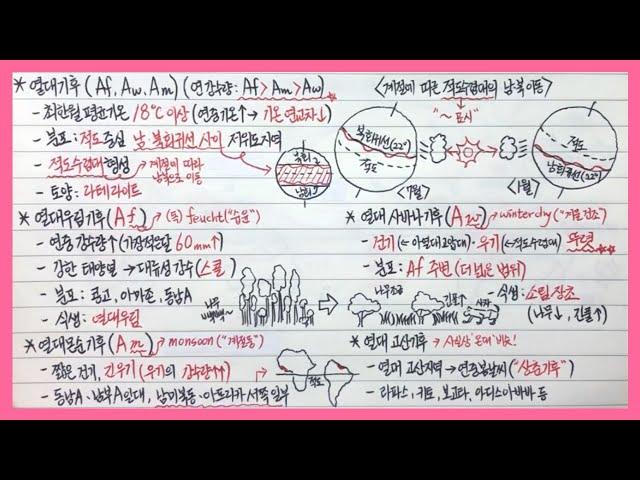 * 열대기후 (Af, Aw, Am) (연강수량: Af > Am > Aw)
- 최한월 평균기온 18℃이상 (연중기온↑ → 기온 연교차↓)
- 분포: 적도 중심 남·북회귀선 사이 저위도지역
- 적도수렴대 형성 → 계절에 따라 남북으로 이동
- 토양: 라테라이트
<계절에 따른 적도수렴대의 남·북이동>
"~ 표시"
북회귀선(22°)
적도
<7월>
적도
남회귀선(22°)
<1월>
* 열대우림기후 (Af) → (독) feucht("습윤")
- 연중 강수량↑ (가장적은달 60mm↑)
- 강한 태양열 → 대류성 강수 (스콜)
- 분포: 콩고, 아마존, 동남A
- 식생: 열대우림
* 열대 사바나기후 (Aw) → winter dry ("겨울 건조")
- 건기 (← 아열대고압대) · 우기 (←적도수렴대) 뚜렷
- 분포: Af 주변 (더 넓은 범위)
- 식생: 소림장초
(나무↓, 긴풀↑)
* 열대몬순기후 (Am) → monsoon ("계절풍")
- 짧은 건기, 긴우기 (우기의 강수량↑↑)
- 동남A · 남부A일대, 남미북동 · 아프리카 서쪽 일부
적도
* 열대 고산기후 → 사실상 '온대'비슷!
- 열대 고산지역 → 연중봄날씨 ("상춘기후")
- 라파스, 키토, 보고타, 아디스아바바 등